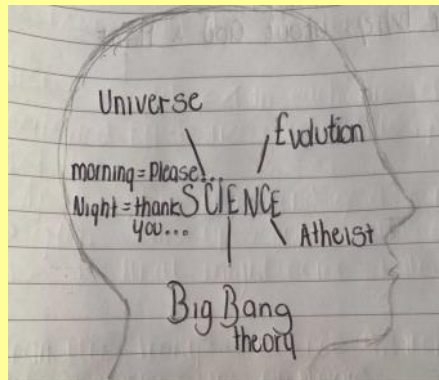 Universe
Evolution
morning = Please!..
Night = thank
you...
SCIENCE
Atheist
Big Bang
theory